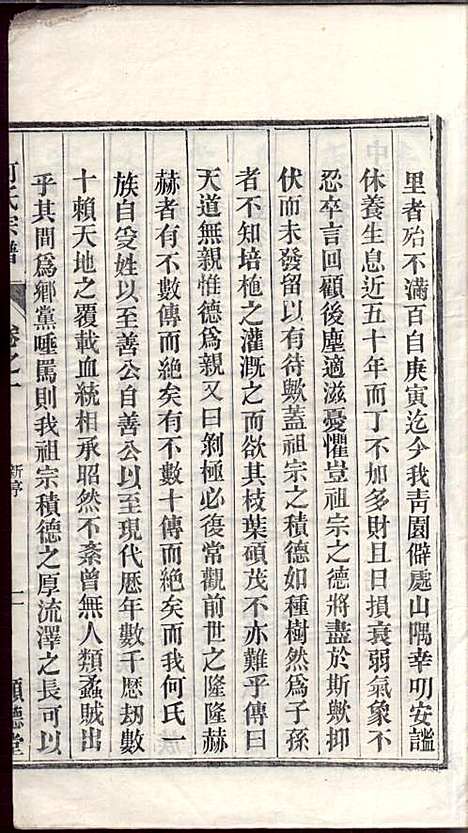 里者殆不滿百自庚寅迄今我靑園僻處山隅幸明安謐
休養生息近五十年而丁不加多財且日損衰弱氣象不
忍卒言回顧後塵適滋憂懼豈祖宗之德將盡於斯歟抑
伏而未發留以有待歟蓋祖宗之積德如種樹然爲子孫
者不知培植之灌漑之而欲其枝葉碩茂不亦難乎傳曰
天道無親惟德爲親又曰剝極必復常觀前世之隆隆赫
赫者有不數傳而絶矣有不數十傳而絶矣而我何氏一
族自受姓以至善公自善公以至現代厯年數千厯劫數
十賴天地之覆載血統相承昭然不紊曾無人類蟊賊出
乎其間爲鄉黨唾罵則我祖宗積德之厚流澤之長可以
何氏宗譜
卷之一
新序
二
順德堂